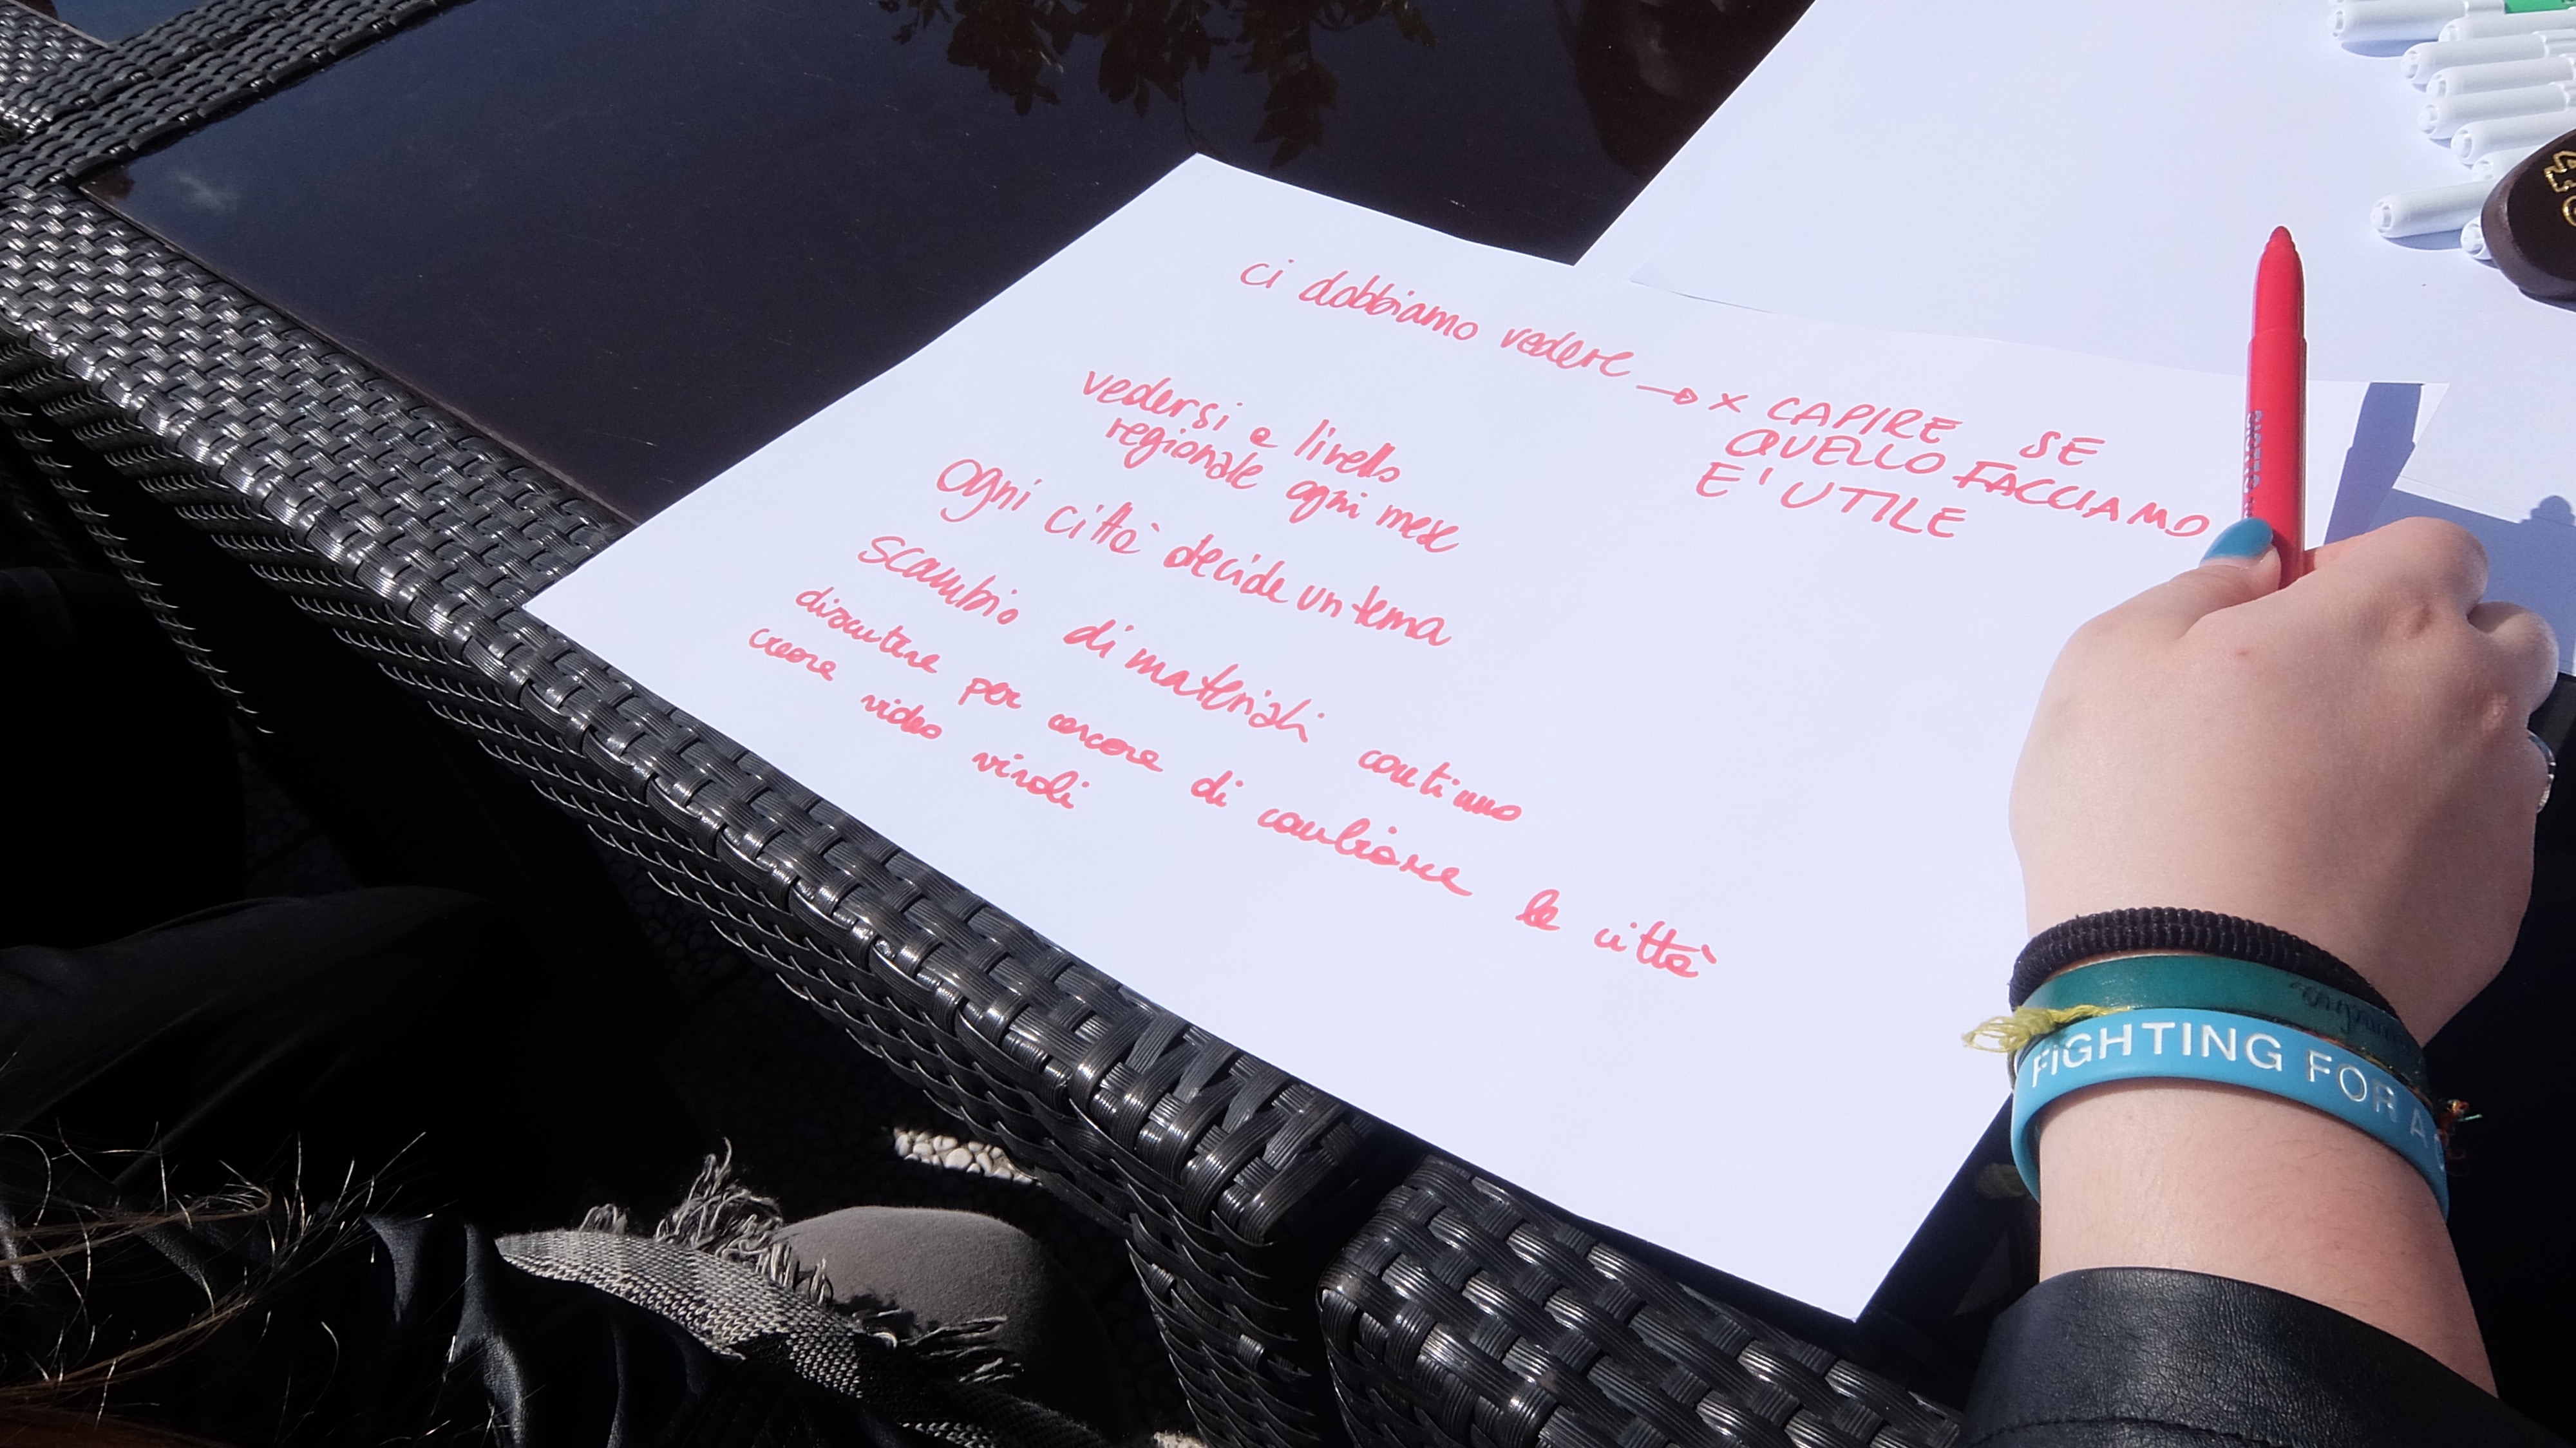 ci dobbiamo vedere → x CAPIRE SE
QUELLO FACCIAMO
E' UTILE
vedersi a livello
regionale ogni mese
Ogni città decide un tema
scambio di materiali continuo
discutere per cercare di cambiare le città
creare video virali
GIOTTO
FIGHTING FOR A